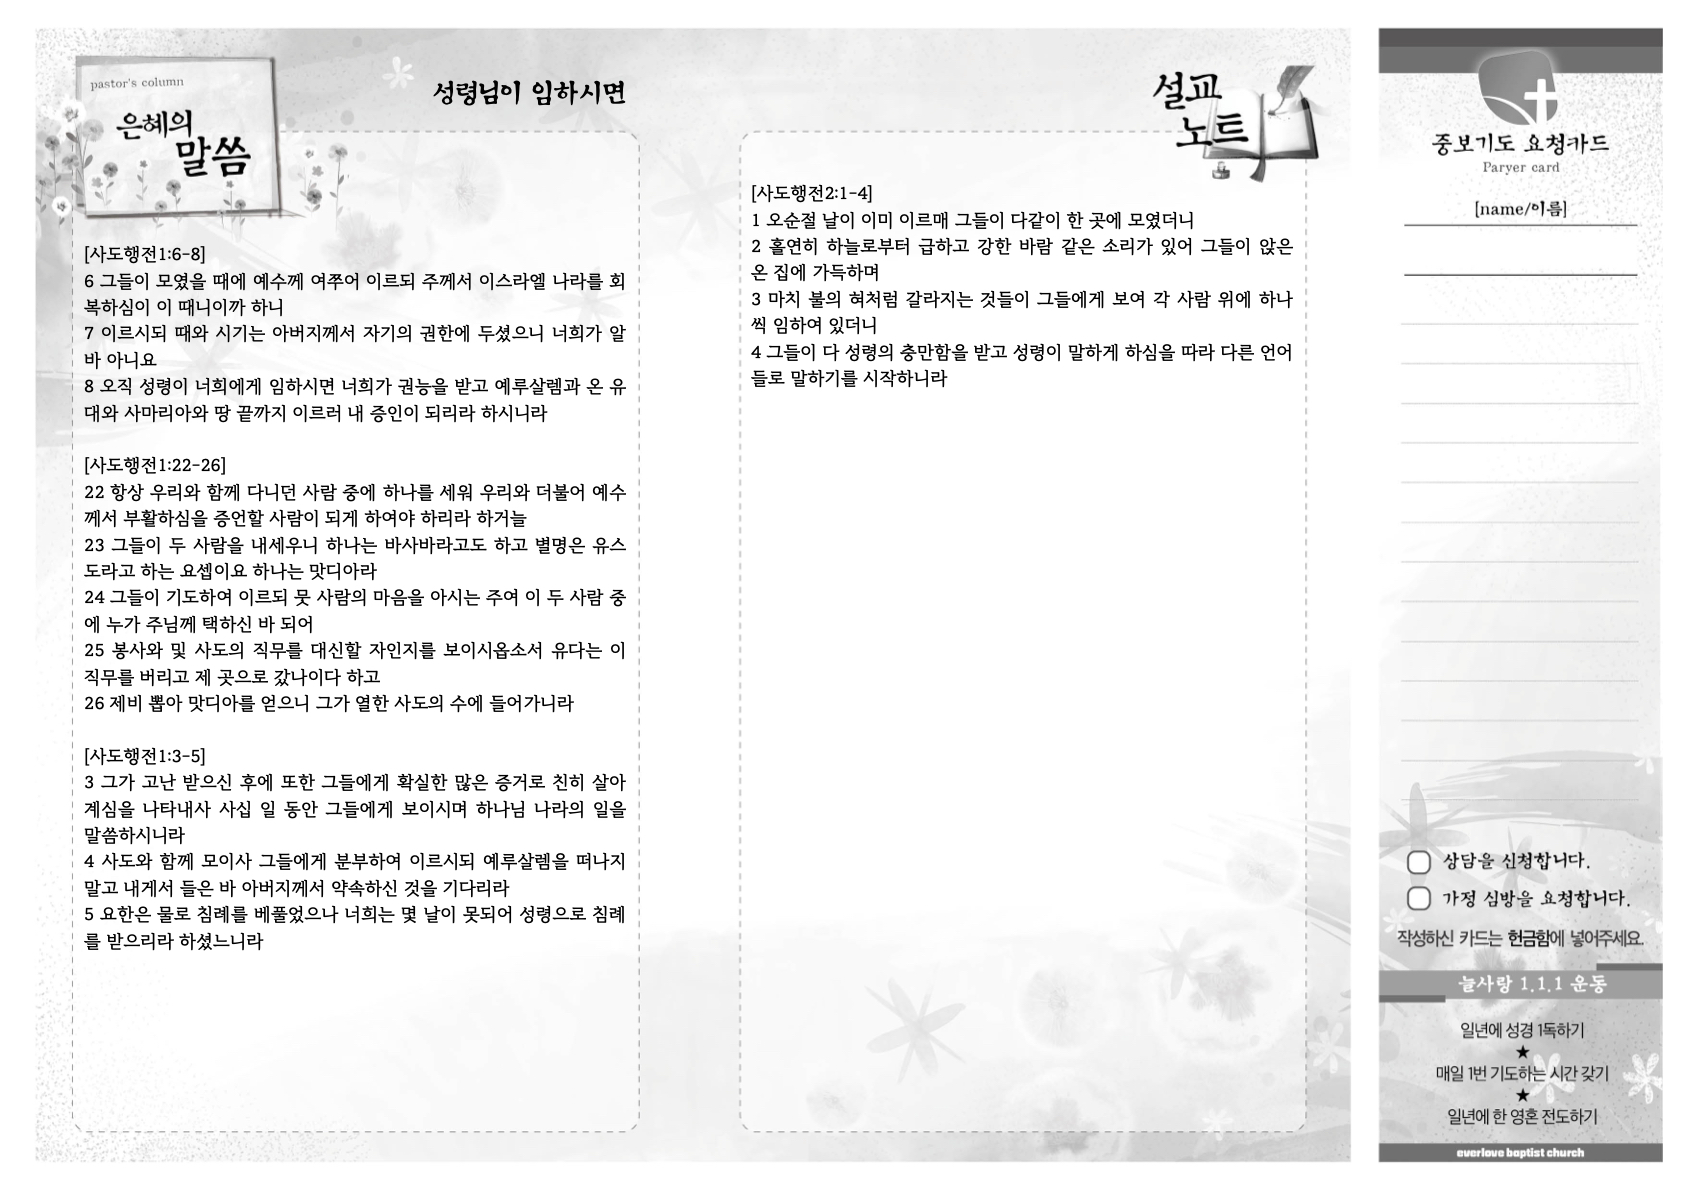 pastor's column
은혜의
말씀
성령님이 임하시면
[사도행전1:6-8]
6 그들이 모였을 때에 예수께 여쭈어 이르되 주께서 이스라엘 나라를 회
복하심이 이 때니이까 하니
7 이르시되 때와 시기는 아버지께서 자기의 권한에 두셨으니 너희가 알
바 아니요
8 오직 성령이 너희에게 임하시면 너희가 권능을 받고 예루살렘과 온 유
대와 사마리아와 땅 끝까지 이르러 내 증인이 되리라 하시니라
[사도행전1:22-26]
22 항상 우리와 함께 다니던 사람 중에 하나를 세워 우리와 더불어 예수
께서 부활하심을 증언할 사람이 되게 하여야 하리라 하거늘
23 그들이 두 사람을 내세우니 하나는 바사바라고도 하고 별명은 유스
도라고 하는 요셉이요 하나는 맛디아라
24 그들이 기도하여 이르되 뭇 사람의 마음을 아시는 주여 이 두 사람 중
에 누가 주님께 택하신 바 되어
25 봉사와 및 사도의 직무를 대신할 자인지를 보이시옵소서 유다는 이
직무를 버리고 제 곳으로 갔나이다 하고
26 제비 뽑아 맛디아를 얻으니 그가 열한 사도의 수에 들어가니라
[사도행전1:3-5]
3 그가 고난 받으신 후에 또한 그들에게 확실한 많은 증거로 친히 살아
계심을 나타내사 사십 일 동안 그들에게 보이시며 하나님 나라의 일을
말씀하시니라
4 사도와 함께 모이사 그들에게 분부하여 이르시되 예루살렘을 떠나지
말고 내게서 들은 바 아버지께서 약속하신 것을 기다리라
5 요한은 물로 침례를 베풀었으나 너희는 몇 날이 못되어 성령으로 침례
를 받으리라 하셨느니라
설교
노트
[사도행전2:1-4]
1 오순절 날이 이미 이르매 그들이 다같이 한 곳에 모였더니
2 홀연히 하늘로부터 급하고 강한 바람 같은 소리가 있어 그들이 앉은
온 집에 가득하며
3 마치 불의 혀처럼 갈라지는 것들이 그들에게 보여 각 사람 위에 하나
씩 임하여 있더니
4 그들이 다 성령의 충만함을 받고 성령이 말하게 하심을 따라 다른 언어
들로 말하기를 시작하니라
중보기도 요청카드
Paryer card
[name/이름]
상담을 신청합니다.
가정 심방을 요청합니다.
작성하신 카드는 헌금함에 넣어주세요.
늘사랑 1.1.1 운동
일년에 성경 1독하기
★
매일 1번 기도하는 시간 갖기
★
일년에 한 영혼 전도하기
everlove baptist church